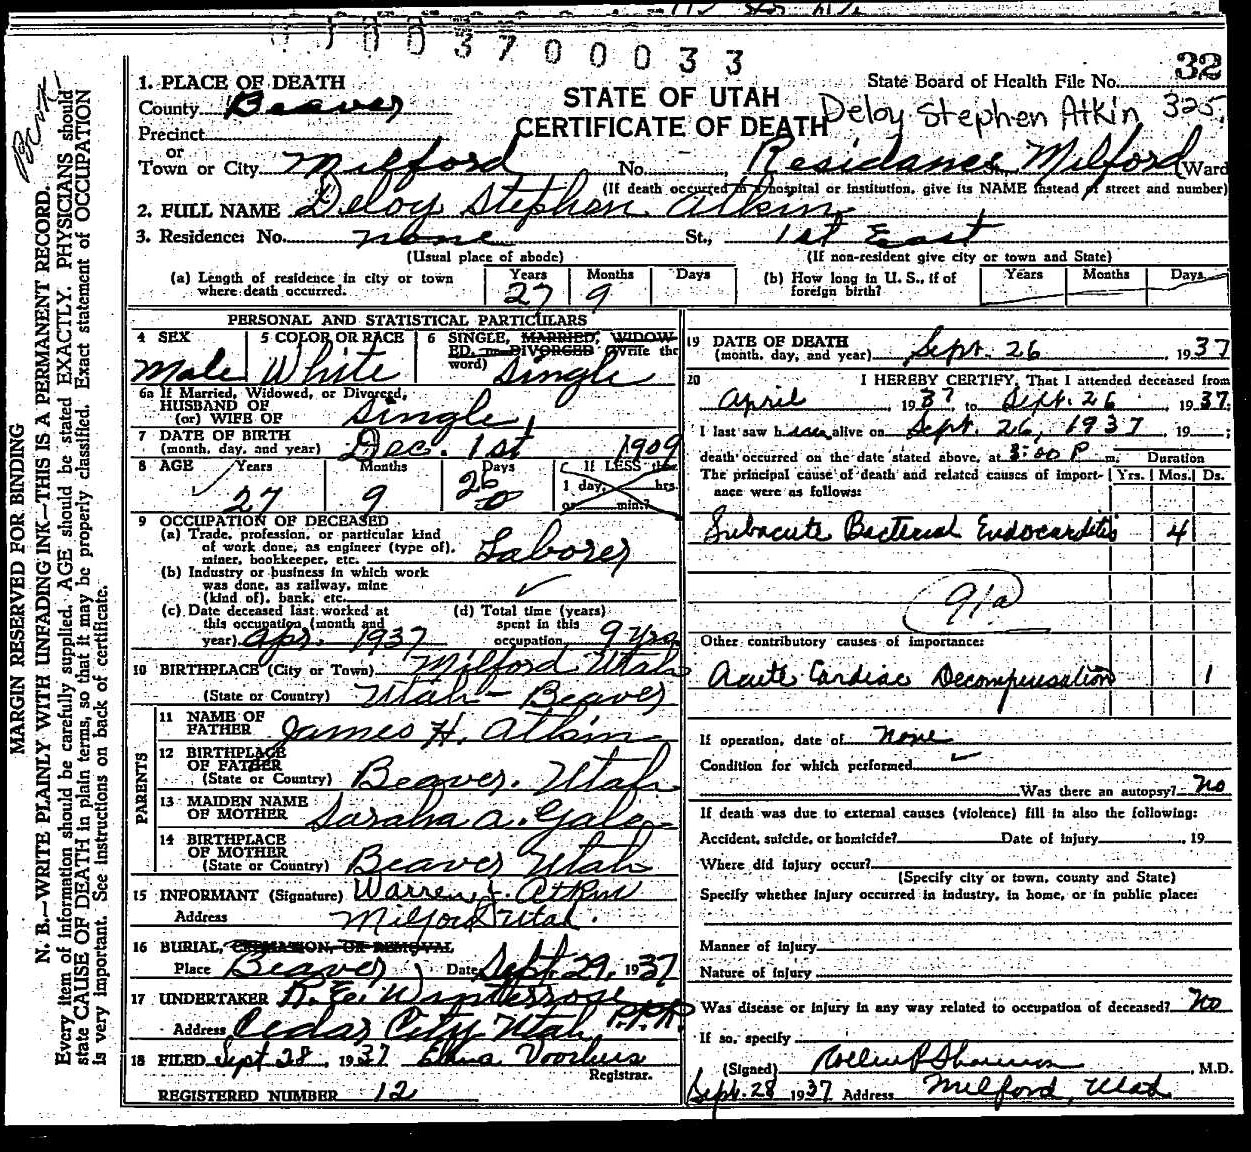 0 0 0 3 7 0 0 0 3 3
32
1. PLACE OF DEATH
State Board of Health File No.
County Beaver
STATE OF UTAH
Deloy Stephen Atkin 325.
Precinct
CERTIFICATE OF DEATH
or
Town or City Milford No. Residance St. Milford (Ward
(If death occurred in a hospital or institution, give its NAME instead of street and number)
2. FULL NAME Deloy Stephen Atkin
3. Residence: No. none St., 1st East
(Usual place of abode) (If non-resident give city or town and State)
(a) Length of residence in city or town where death occurred. Years 27 Months 9 Days
(b) How long in U. S., if of foreign birth? Years Months Days
PERSONAL AND STATISTICAL PARTICULARS
4 SEX Male
5 COLOR OR RACE White
6 SINGLE, MARRIED, WIDOW-
ED, or DIVORCED (Write the
word) Single
6a If Married, Widowed, or Divorced,
HUSBAND OF
(or) WIFE OF Single
7 DATE OF BIRTH
(month, day, and year) Dec. 1st 1909
8 AGE Years 27 Months 9 Days 26
If LESS than
1 day, hrs.
or min.?
9 OCCUPATION OF DECEASED
(a) Trade, profession, or particular kind
of work done, as engineer (type of),
miner, bookkeeper, etc. Laborer
(b) Industry or business in which work
was done, as railway, mine
(kind of), bank, etc.
(c) Date deceased last worked at
this occupation (month and
year) Apr. 1937
(d) Total time (years)
spent in this
occupation 9 yrs
10 BIRTHPLACE (City or Town) Milford Utah
(State or Country) Utah - Beaver
PARENTS
11 NAME OF
FATHER James H. Atkin
12 BIRTHPLACE
OF FATHER
(State or Country) Beaver. Utah
13 MAIDEN NAME
OF MOTHER Saraha A. Gale
14 BIRTHPLACE
OF MOTHER
(State or Country) Beaver Utah
15 INFORMANT (Signature) Warren J. Atkin
Address Milford Utah.
16 BURIAL, CREMATION, OR REMOVAL
Place Beaver Date Sept. 29, 1937
17 UNDERTAKER
Address Cedar City Utah
18 FILED Sept 28, 1937 Voorhees
Registrar.
REGISTERED NUMBER 12
19 DATE OF DEATH
(month, day, and year) Sept. 26 1937
20 I HEREBY CERTIFY, That I attended deceased from
April, 1937 to Sept. 26 1937;
I last saw him alive on Sept. 26, 1937, 19 ;
death occurred on the date stated above, at 3:00 P m. Duration
The principal cause of death and related causes of import-
ance were as follows: Yrs. Mos. Ds.
Subacute Bacterial Endocarditis 4
91a
Other contributory causes of importance:
Acute Cardiac Decompensation 1
If operation, date of none
Condition for which performed
Was there an autopsy? No
If death was due to external causes (violence) fill in also the following:
Accident, suicide, or homicide? Date of injury , 19
Where did injury occur?
(Specify city or town, county and State)
Specify whether injury occurred in industry, in home, or in public place:
Manner of injury
Nature of injury
Was disease or injury in any way related to occupation of deceased? No
If so, specify
(Signed) , M.D.
Sept. 28 1937 Address Milford, Utah
MARGIN RESERVED FOR BINDING
N. B.—WRITE PLAINLY WITH UNFADING INK—THIS IS A PERMANENT RECORD.
Every item of information should be carefully supplied. AGE should be stated EXACTLY. PHYSICIANS should
state CAUSE OF DEATH in plain terms, so that it may be properly classified. Exact statement of OCCUPATION
is very important. See instructions on back of certificate.